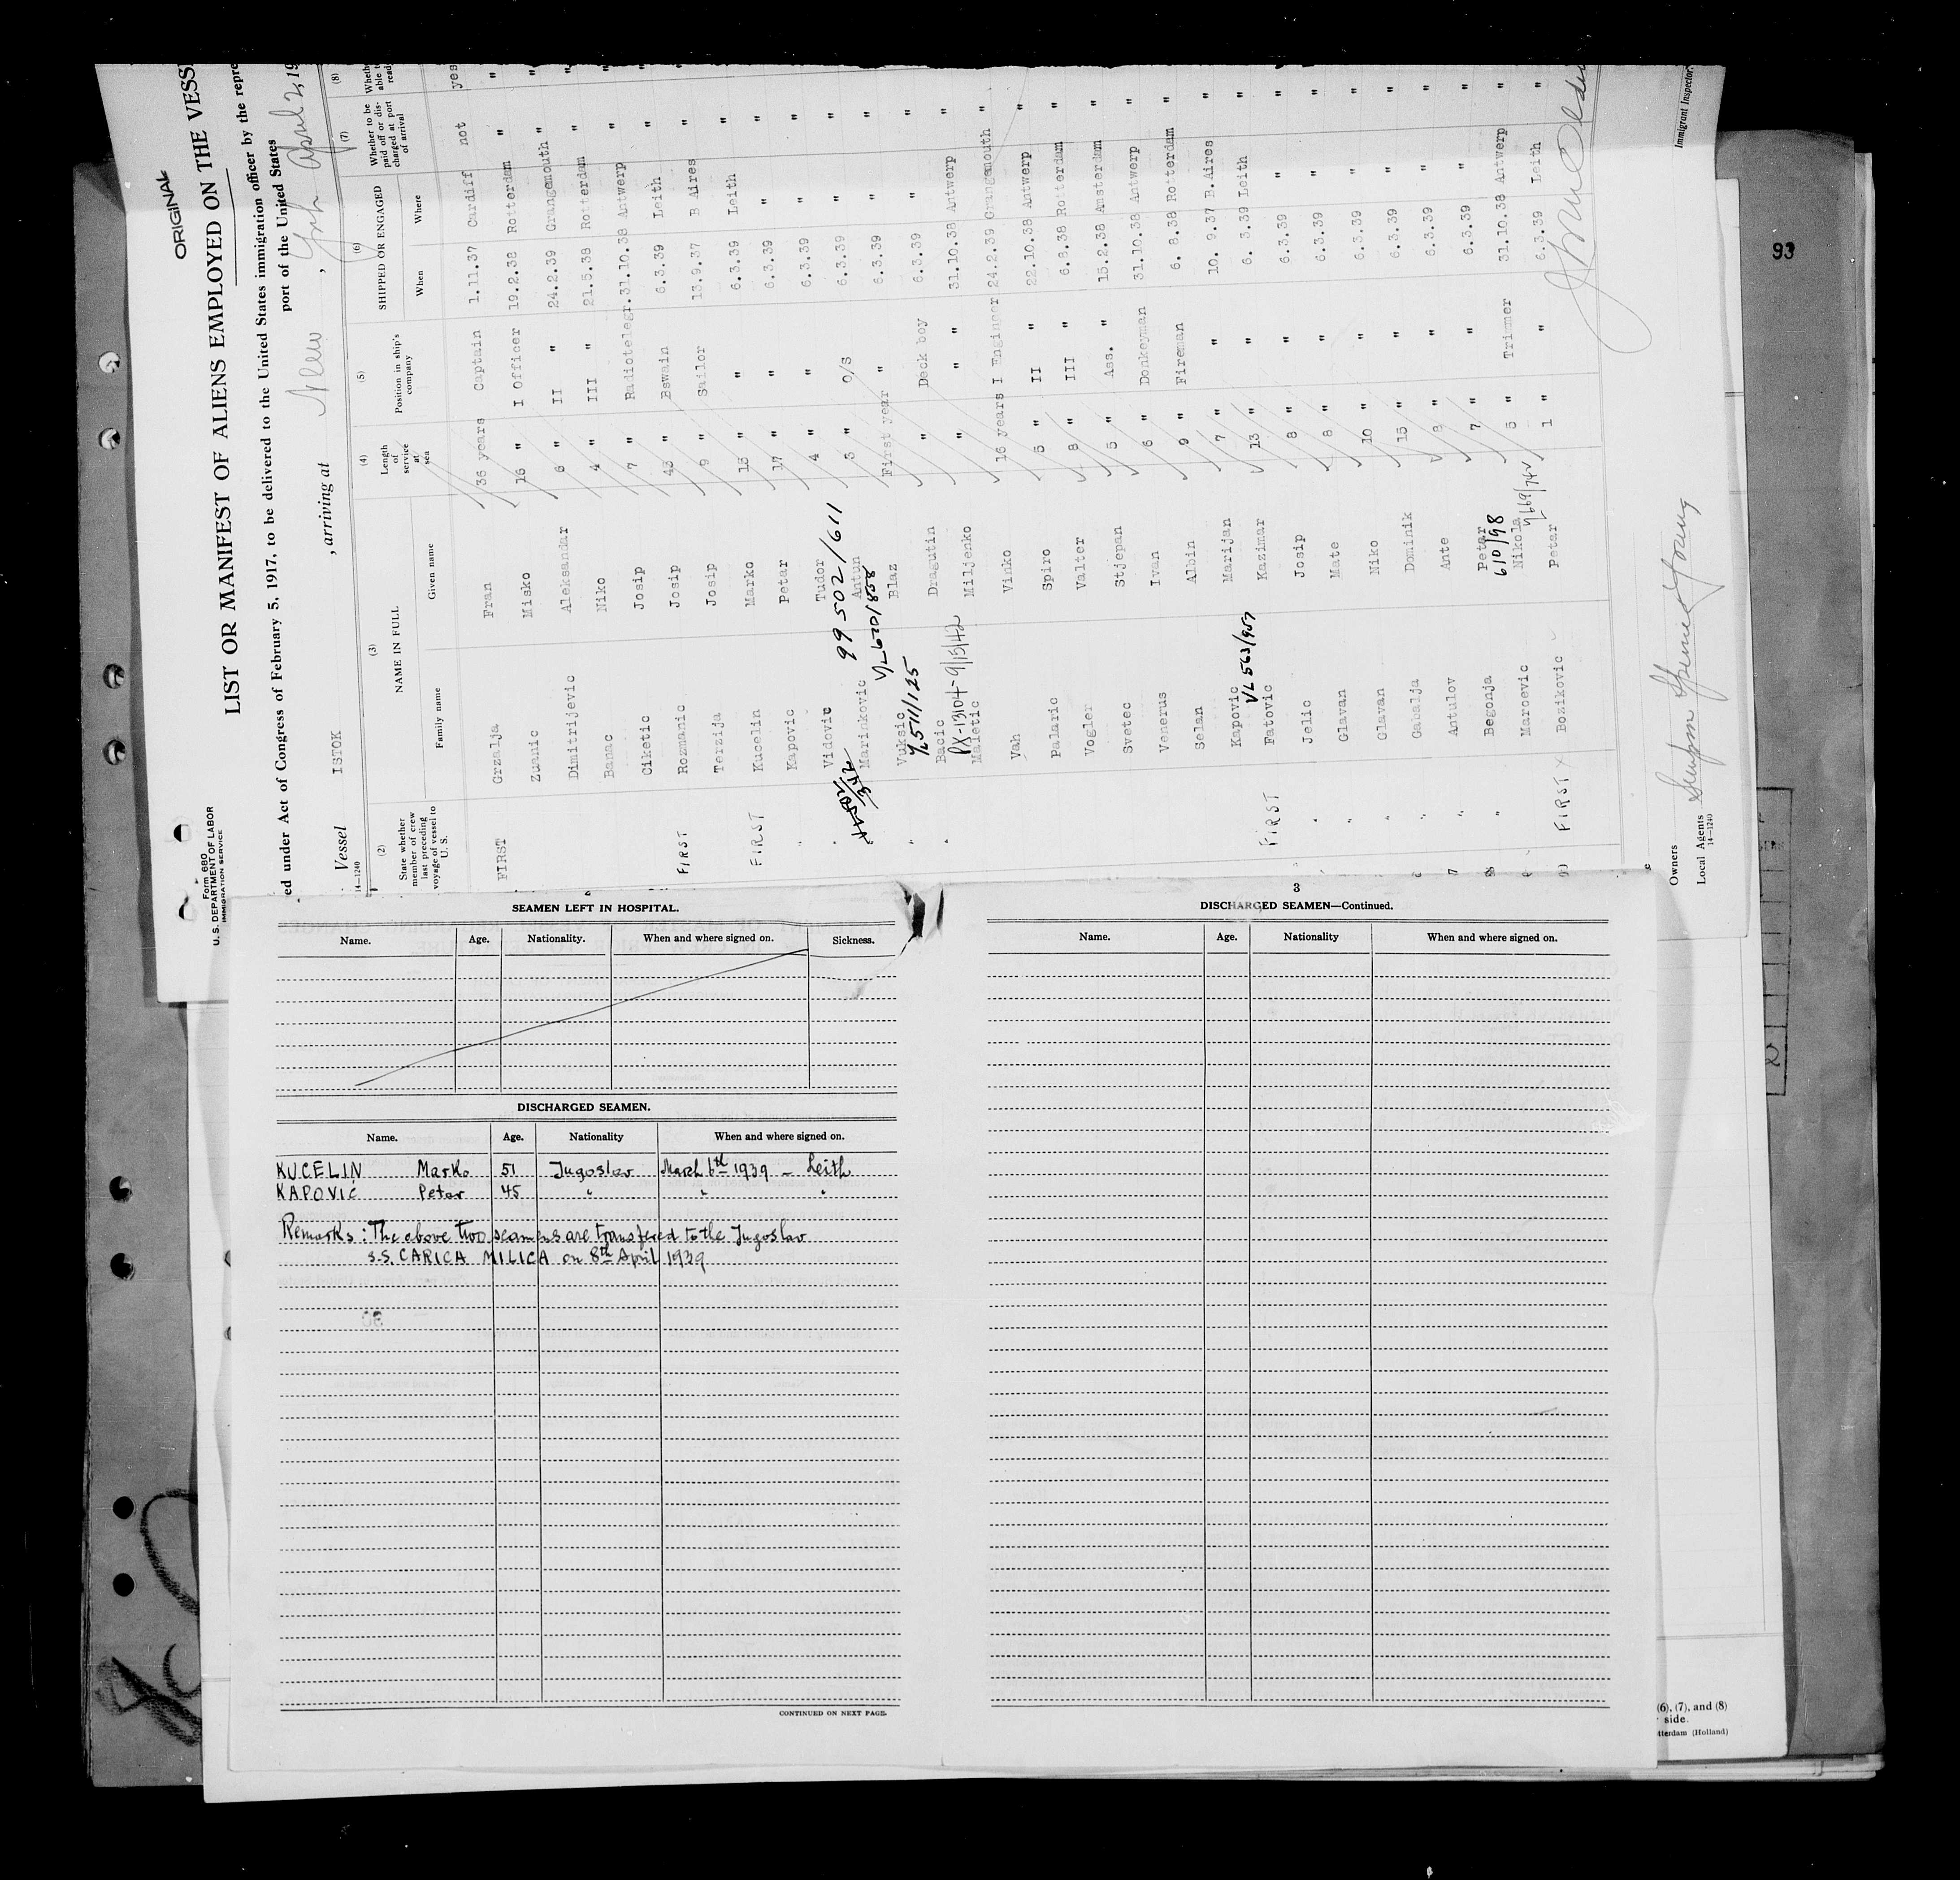 ORIGINAL
Form 680
U. S. DEPARTMENT OF LABOR
IMMIGRATION SERVICE
LIST OR MANIFEST OF ALIENS EMPLOYED ON THE VESS
ed under Act of Congress of February 5, 1917, to be delivered to the United States immigration officer by the repre
port of the United States
Vessel ISTOK , arriving at New York , April 2, 19
14—1240
(2) (3) (4) (5) (6) (7) (8)
State whether member of crew last preceding voyage of vessel to U. S.
NAME IN FULL
Family name Given name
Length of service at sea
Position in ship's company
SHIPPED OR ENGAGED
When Where
Whether to be paid off or discharged at port of arrival
FIRST Grzalja Fran 36 years Captain 1.11.37 Cardiff not yes
Zuanic Misko 16 " I Officer 19.2.38 Rotterdam " "
Dimitrijevic Aleksandar 6 " II " 24.2.39 Grangemouth " "
Banac Niko 4 " III " 21.5.38 Rotterdam " "
Ciketic Josip 7 " Radiotelegr. 31.10.38 Antwerp " "
FIRST Rozmanic Josip 43 " Bswain 6.3.39 Leith " "
Terzija Josip 9 " Sailor 13.9.37 B Aires " "
FIRST Kucelin Marko 13 " " 6.3.39 Leith " "
" Kapovic Petar 17 " " 6.3.39 " " "
" Vidovic Tudor 4 " " 6.3.39 " " "
99502/611
Marinkovic Antun 3 " O/S 6.3.39 " " "
Vuksic Blaz First year " 6.3.39 " " "
" Bacic Dragutin " Deck boy 6.3.39 " " "
Maletic Miljenko " " " 31.10.38 Antwerp " "
Vah Vinko 16 years I Engineer 24.2.39 Grangemouth " "
Palaric Spiro 5 " II " 22.10.38 Antwerp " "
Vogler Valter 8 " III " 6.8.38 Rotterdam " "
Svetec Stjepan 5 " Ass. " 15.2.38 Amsterdam " "
Venerus Ivan 6 " Donkeyman 31.10.38 Antwerp " "
Selan Albin 9 " Fireman 6. 8.38 Rotterdam " "
Kapovic Marijan 7 " " 10. 9.37 B.Aires " "
FIRST Fatovic Kazimar 13 " " 6. 3.39 Leith " "
" Jelic Josip 8 " " 6.3.39 " " "
" Glavan Mate 8 " " 6.3.39 " " "
" Glavan Niko 10 " " 6.3.39 " " "
" Gabalja Dominik 15 " " 6.3.39 " " "
" Antulov Ante 8 " " 6.3.39 " " "
" Begonja Petar 7 " " 6.3.39 " " "
610/98
Maroevic Nikola 5 " Trimmer 31.10.38 Antwerp " "
FIRST X Bozikovic Petar 1 " " 6.3.39 Leith " "
Owners
Local Agents
14—1240
Immigrant Inspector.
93
SEAMEN LEFT IN HOSPITAL.
Name. Age. Nationality. When and where signed on. Sickness.
DISCHARGED SEAMEN.
Name. Age. Nationality When and where signed on.
KUCELIN Marko 51 Jugoslav March 6th 1939 – Leith
KAPOVIĆ Petar 45 " " "
Remarks: The above two seamens are transfered to the Jugoslav
S.S. CARICA MILICA on 8th April 1939
CONTINUED ON NEXT PAGE.
3
DISCHARGED SEAMEN—Continued.
Name. Age. Nationality When and where signed on.
(6), (7), and (8)
side.
tterdam (Holland)